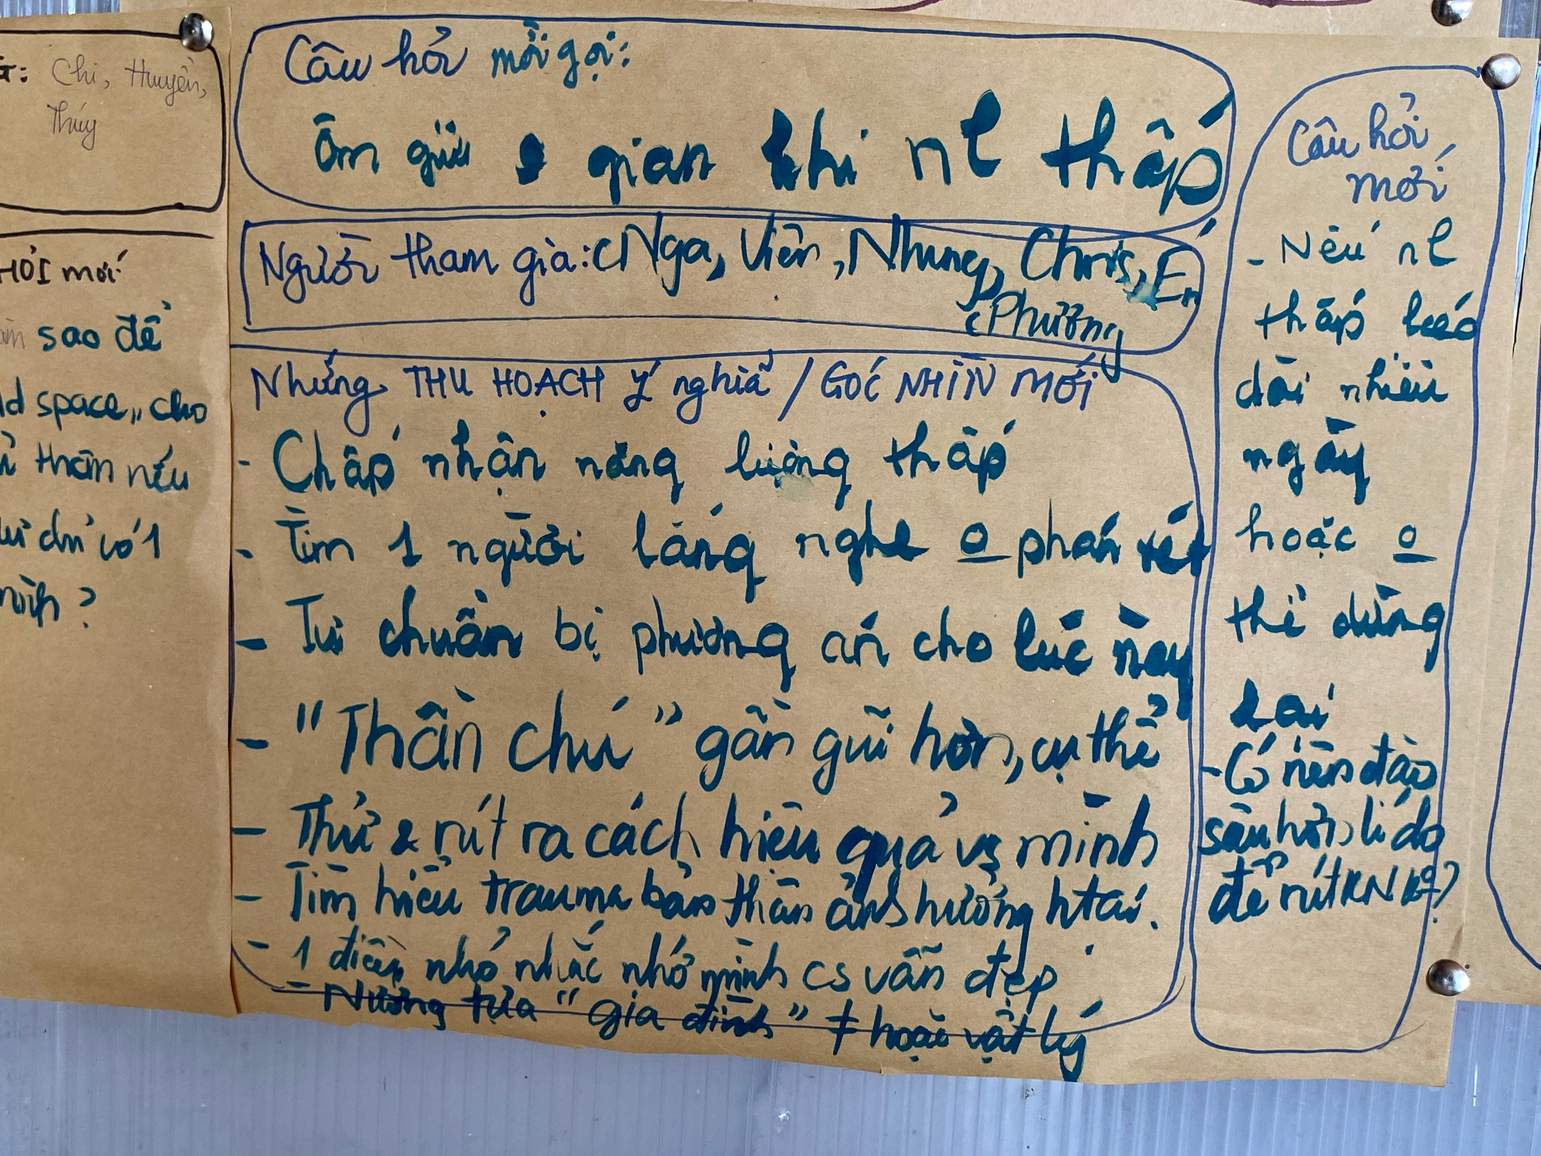 G: Chi, Huyền,
Thúy
HỎI mới
sao để
ld space" cho
thân nếu
với 1
mình?
Câu hỏi mời gọi:
Ôm giữ o gian khi nl thấp
Người tham gia: cNga, Viên, Nhung, Chris, Én
cPhương
Những THU HOẠCH ý nghĩa / GÓC NHÌN MỚI
- Chấp nhận năng lượng thấp
- Tìm 1 người lắng nghe o phán xét
- Tự chuẩn bị phương án cho lúc này
- "Thần chú" gần gũi hơn, cụ thể
- Thử & rút ra cách hiệu quả vs mình
- Tìm hiểu trauma bản thân ảnh hưởng htại.
- 1 điều nhỏ nhắc nhở mình cs vẫn đẹp
- Nương tựa "gia đình" ≠ hoặc vật lý
Câu hỏi
mới
- Nếu nl
thấp kéo
dài nhiều
ngày
hoặc o
thể dừng
lại
- Có nên đào
sâu hơn lí do
để rút KN ko?